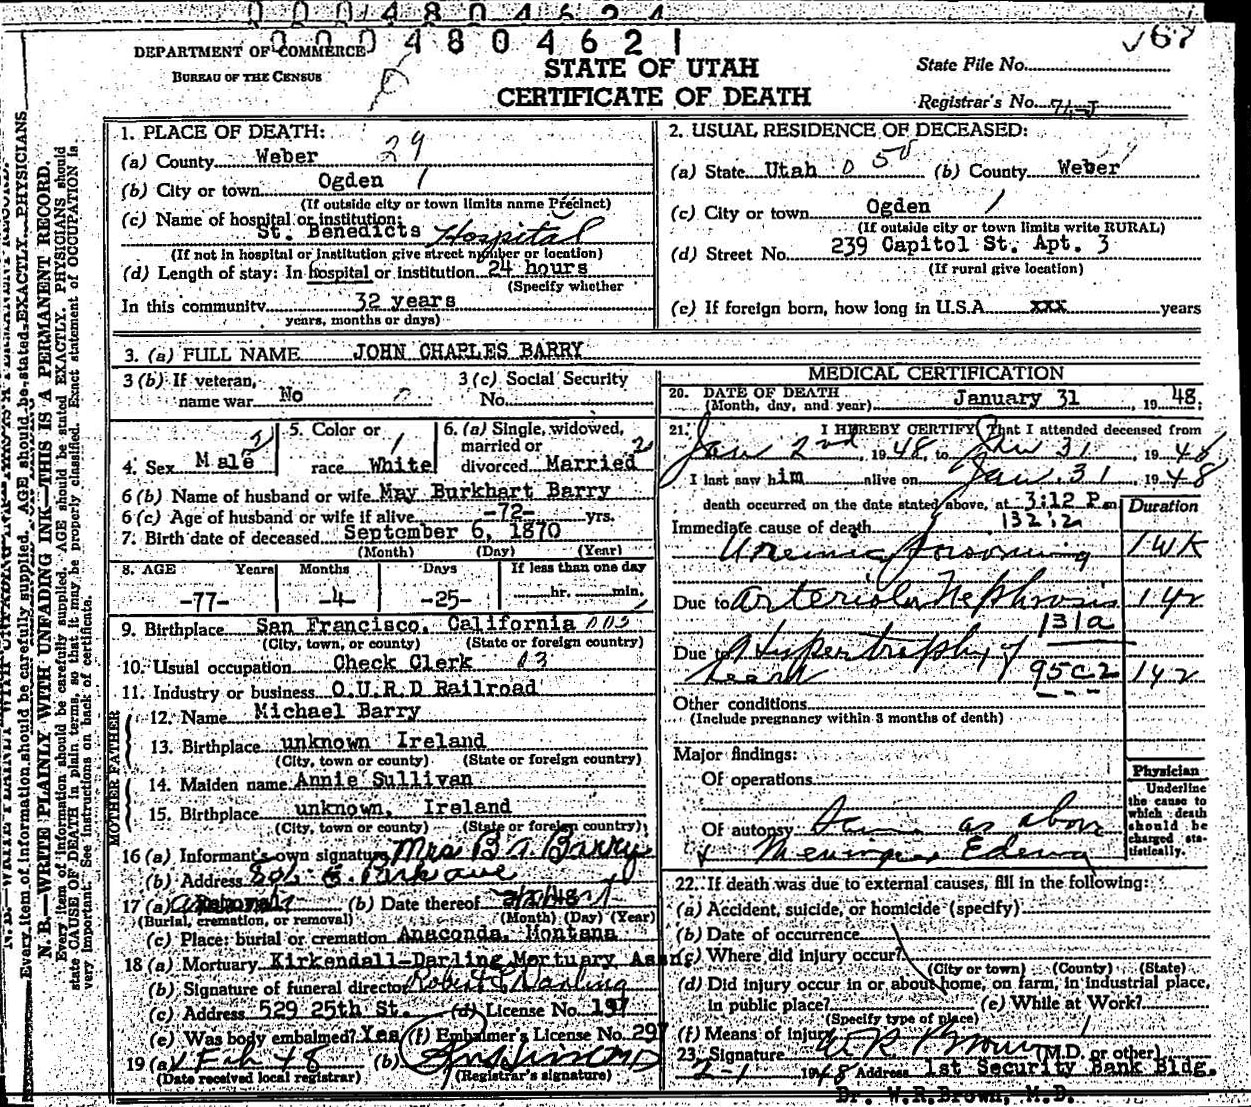 0004804624
0004804621
DEPARTMENT OF COMMERCE
BUREAU OF THE CENSUS
STATE OF UTAH
CERTIFICATE OF DEATH
State File No.
Registrar's No. 74-J
1. PLACE OF DEATH:
(a) County Weber 29
(b) City or town Ogden 1
(If outside city or town limits name Precinct)
(c) Name of hospital or institution:
St. Benedicts Hospital
(If not in hospital or institution give street number or location)
(d) Length of stay: In hospital or institution 24 hours
(Specify whether
In this community 32 years
years, months or days)
2. USUAL RESIDENCE OF DECEASED:
(a) State Utah 0 50 (b) County Weber
(c) City or town Ogden 1
(If outside city or town limits write RURAL)
(d) Street No. 239 Capitol St. Apt. 3
(If rural give location)
(e) If foreign born, how long in U.S.A. xxx years
3. (a) FULL NAME JOHN CHARLES BARRY
3 (b) If veteran, name war No
3 (c) Social Security No.
4. Sex Male
5. Color or race White
6. (a) Single, widowed, married or divorced Married
6 (b) Name of husband or wife May Burkhart Barry
6 (c) Age of husband or wife if alive -72- yrs.
7. Birth date of deceased September 6, 1870
(Month) (Day) (Year)
8. AGE Years Months Days If less than one day
-77- -4- -25- hr. min.
9. Birthplace San Francisco, California
(City, town, or county) (State or foreign country)
10. Usual occupation Check Clerk 03
11. Industry or business O.U.R.D Railroad
FATHER
12. Name Michael Barry
13. Birthplace unknown Ireland
(City, town or county) (State or foreign country)
MOTHER
14. Maiden name Annie Sullivan
15. Birthplace unknown, Ireland
(City, town or county) (State or foreign country)
16 (a) Informant's own signature Mrs B A Barry
(b) Address Park ave
17 (a) Removal (b) Date thereof 2/2/48
(Burial, cremation, or removal) (Month) (Day) (Year)
(c) Place: burial or cremation Anaconda, Montana
18 (a) Mortuary Kirkendall-Darling Mortuary Assn
(b) Signature of funeral director Robert L Darling
(c) Address 529 25th St. (d) License No. 197
(e) Was body embalmed? Yes (f) Embalmer's License No. 297
19 (a) Feb 48 (b)
(Date received local registrar) (Registrar's signature)
MEDICAL CERTIFICATION
20. DATE OF DEATH
(Month, day, and year) January 31, 1948:
21. I HEREBY CERTIFY That I attended deceased from
Jan 2nd 1948, to Jan 31 1948
I last saw him alive on Jan. 31 1948
death occurred on the date stated above, at 3:12 P.m
Duration
Immediate cause of death 132:2
Uremic Poisoning 1 wk
Due to Arteriolar Nephrosis 1 yr
131a
Due to Hypertrophy of
heart 95c2 1 yr
Other conditions
(Include pregnancy within 3 months of death)
Major findings:
Of operations
Of autopsy Same as above
Meninges Edema
Physician
Underline the cause to which death should be charged statistically.
22. If death was due to external causes, fill in the following:
(a) Accident, suicide, or homicide (specify)
(b) Date of occurrence
(c) Where did injury occur?
(City or town) (County) (State)
(d) Did injury occur in or about home, on farm, in industrial place,
in public place? (e) While at Work?
(Specify type of place)
(f) Means of injury
23. Signature W R Brown (M.D. or other)
2-1 1948 Address 1st Security Bank Bldg.
Dr. W.R.Brown, M.D.
Every item of information should be carefully supplied. AGE should be stated EXACTLY. PHYSICIANS
N. B.—WRITE PLAINLY WITH UNFADING INK—THIS IS A PERMANENT RECORD.
Every item of information should be carefully supplied. AGE should be stated EXACTLY. PHYSICIANS should
state CAUSE OF DEATH in plain terms, so that it may be properly classified. Exact statement of OCCUPATION is
very important. See instructions on back of certificate.